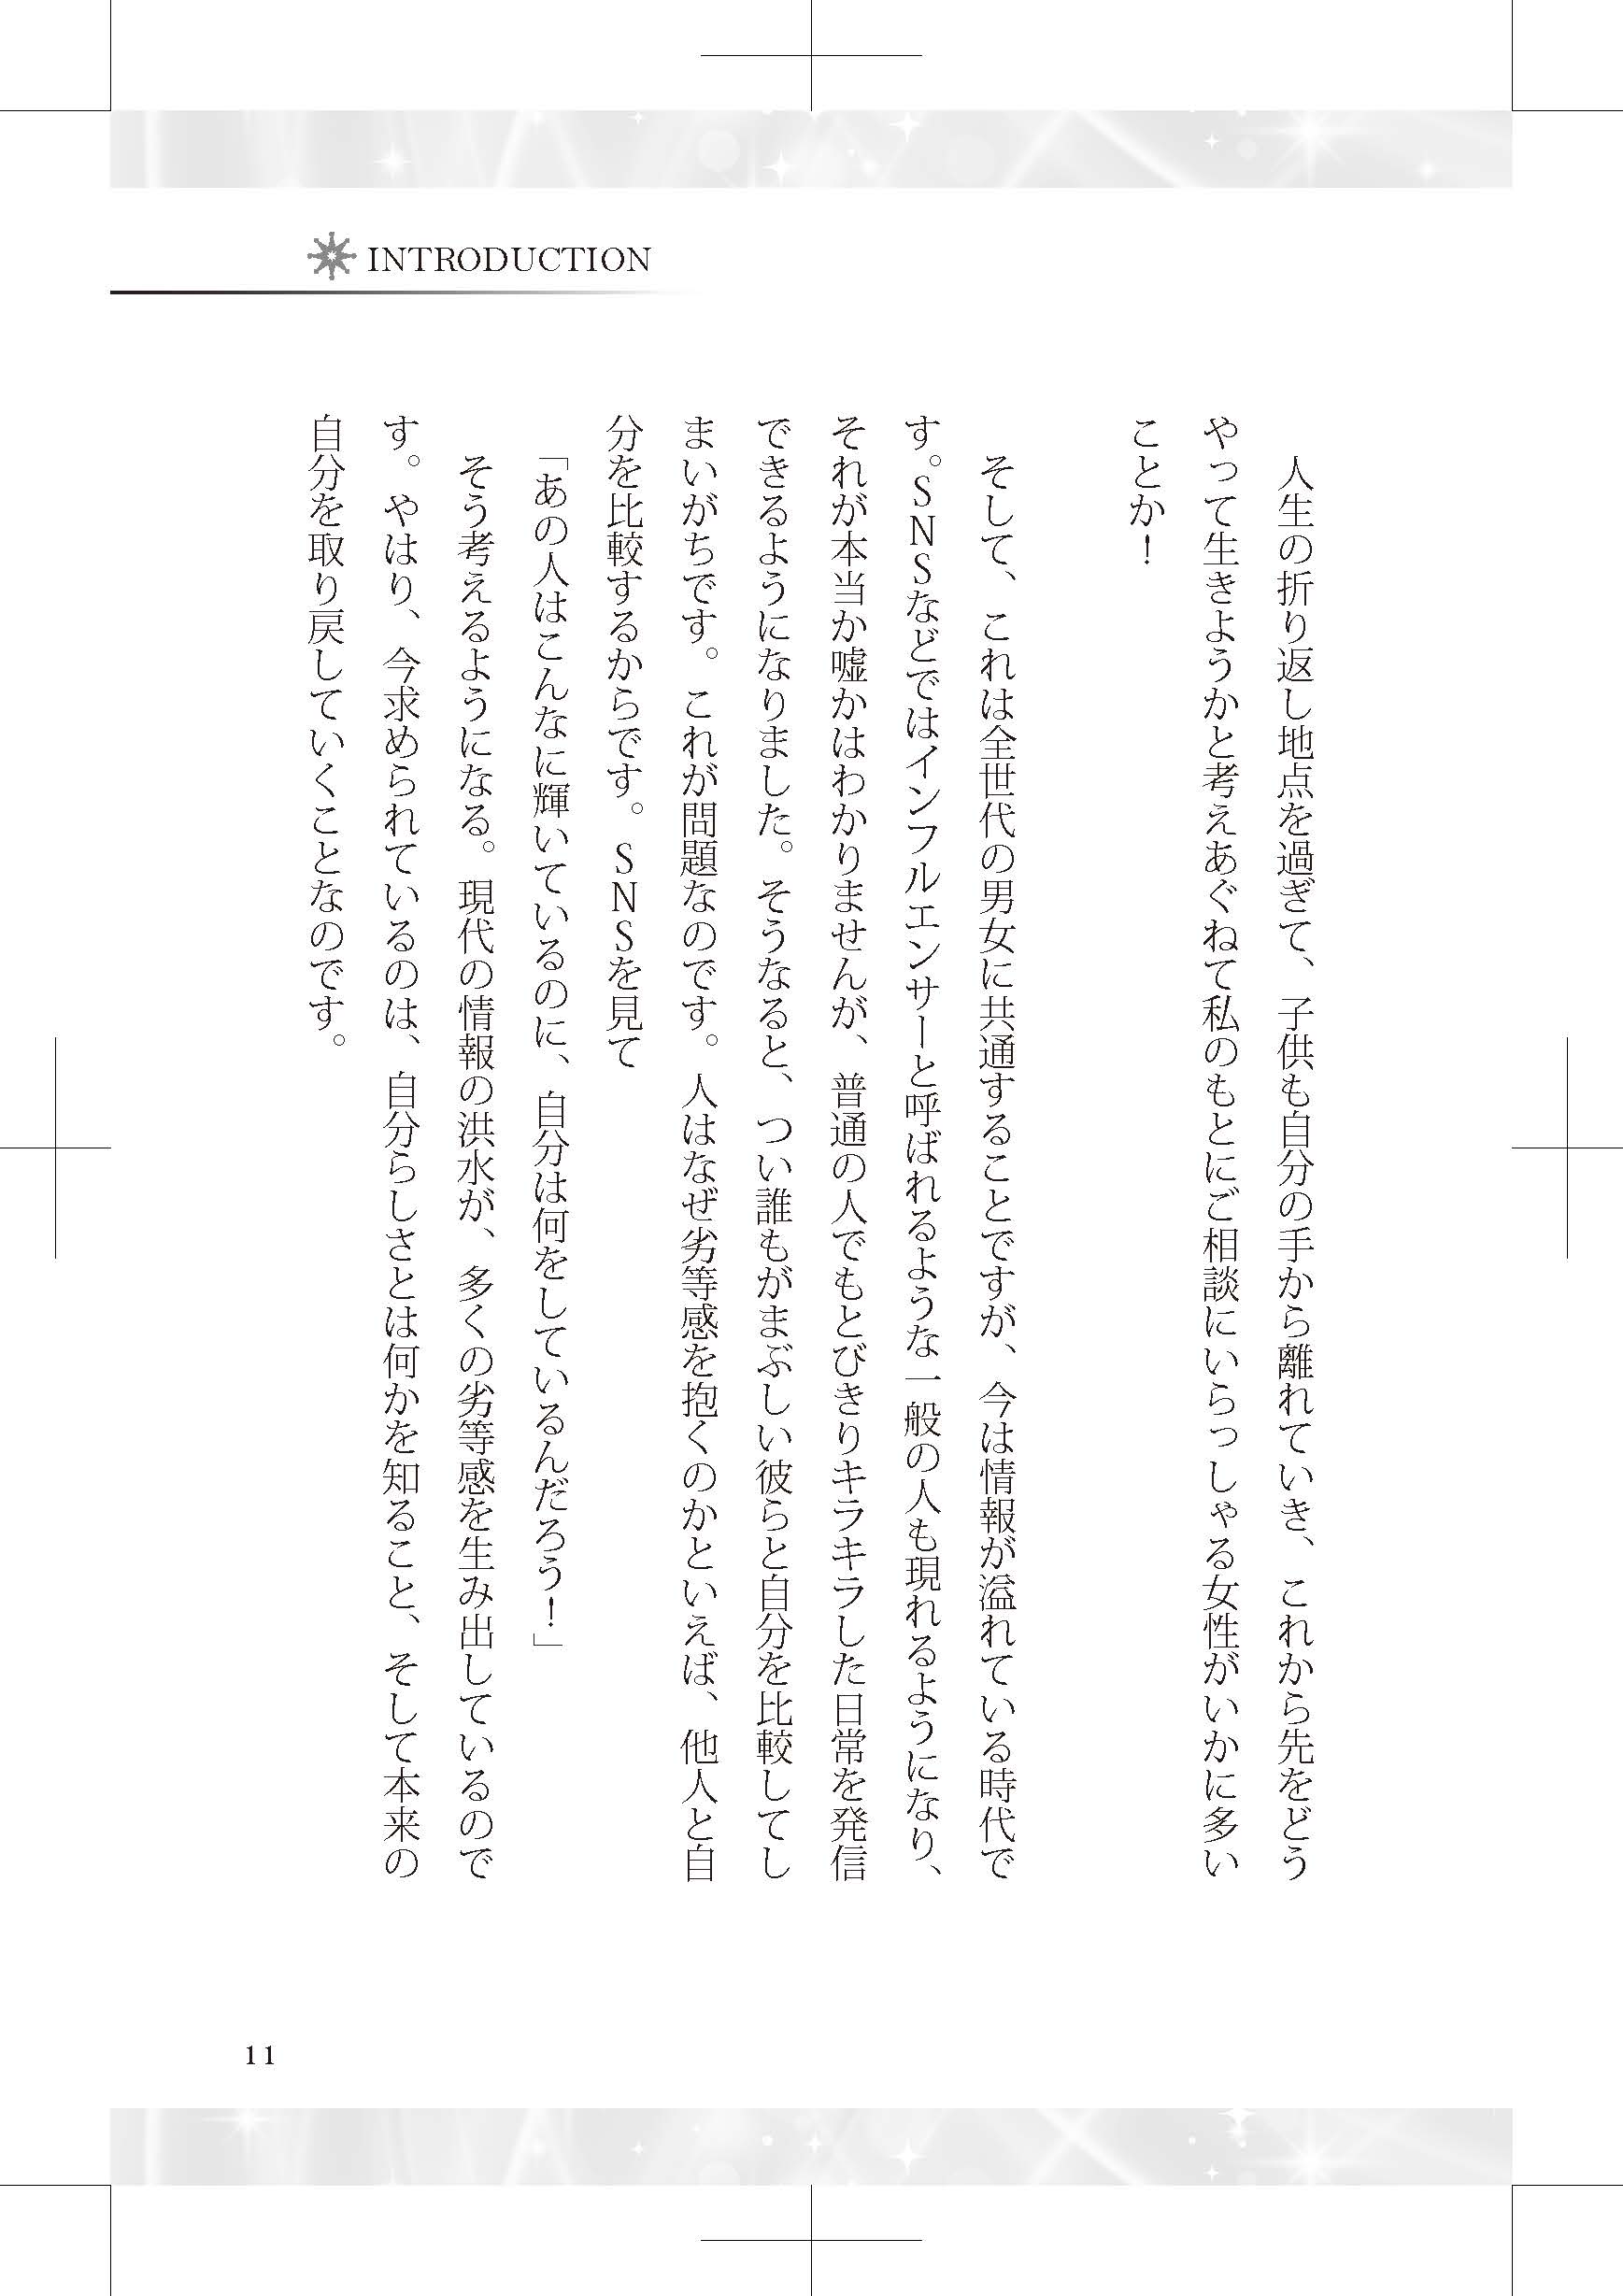 INTRODUCTION
人生の折り返し地点を過ぎて、子供も自分の手から離れていき、これから先をどう
やって生きようかと考えあぐねて私のもとにご相談にいらっしゃる女性がいかに多い
ことか！
そして、これは全世代の男女に共通することですが、今は情報が溢れている時代で
す。ＳＮＳなどではインフルエンサーと呼ばれるような一般の人も現れるようになり、
それが本当か嘘かはわかりませんが、普通の人でもとびきりキラキラした日常を発信
できるようになりました。そうなると、つい誰もがまぶしい彼らと自分を比較してし
まいがちです。これが問題なのです。人はなぜ劣等感を抱くのかといえば、他人と自
分を比較するからです。ＳＮＳを見て
「あの人はこんなに輝いているのに、自分は何をしているんだろう！」
そう考えるようになる。現代の情報の洪水が、多くの劣等感を生み出しているので
す。やはり、今求められているのは、自分らしさとは何かを知ること、そして本来の
自分を取り戻していくことなのです。
11